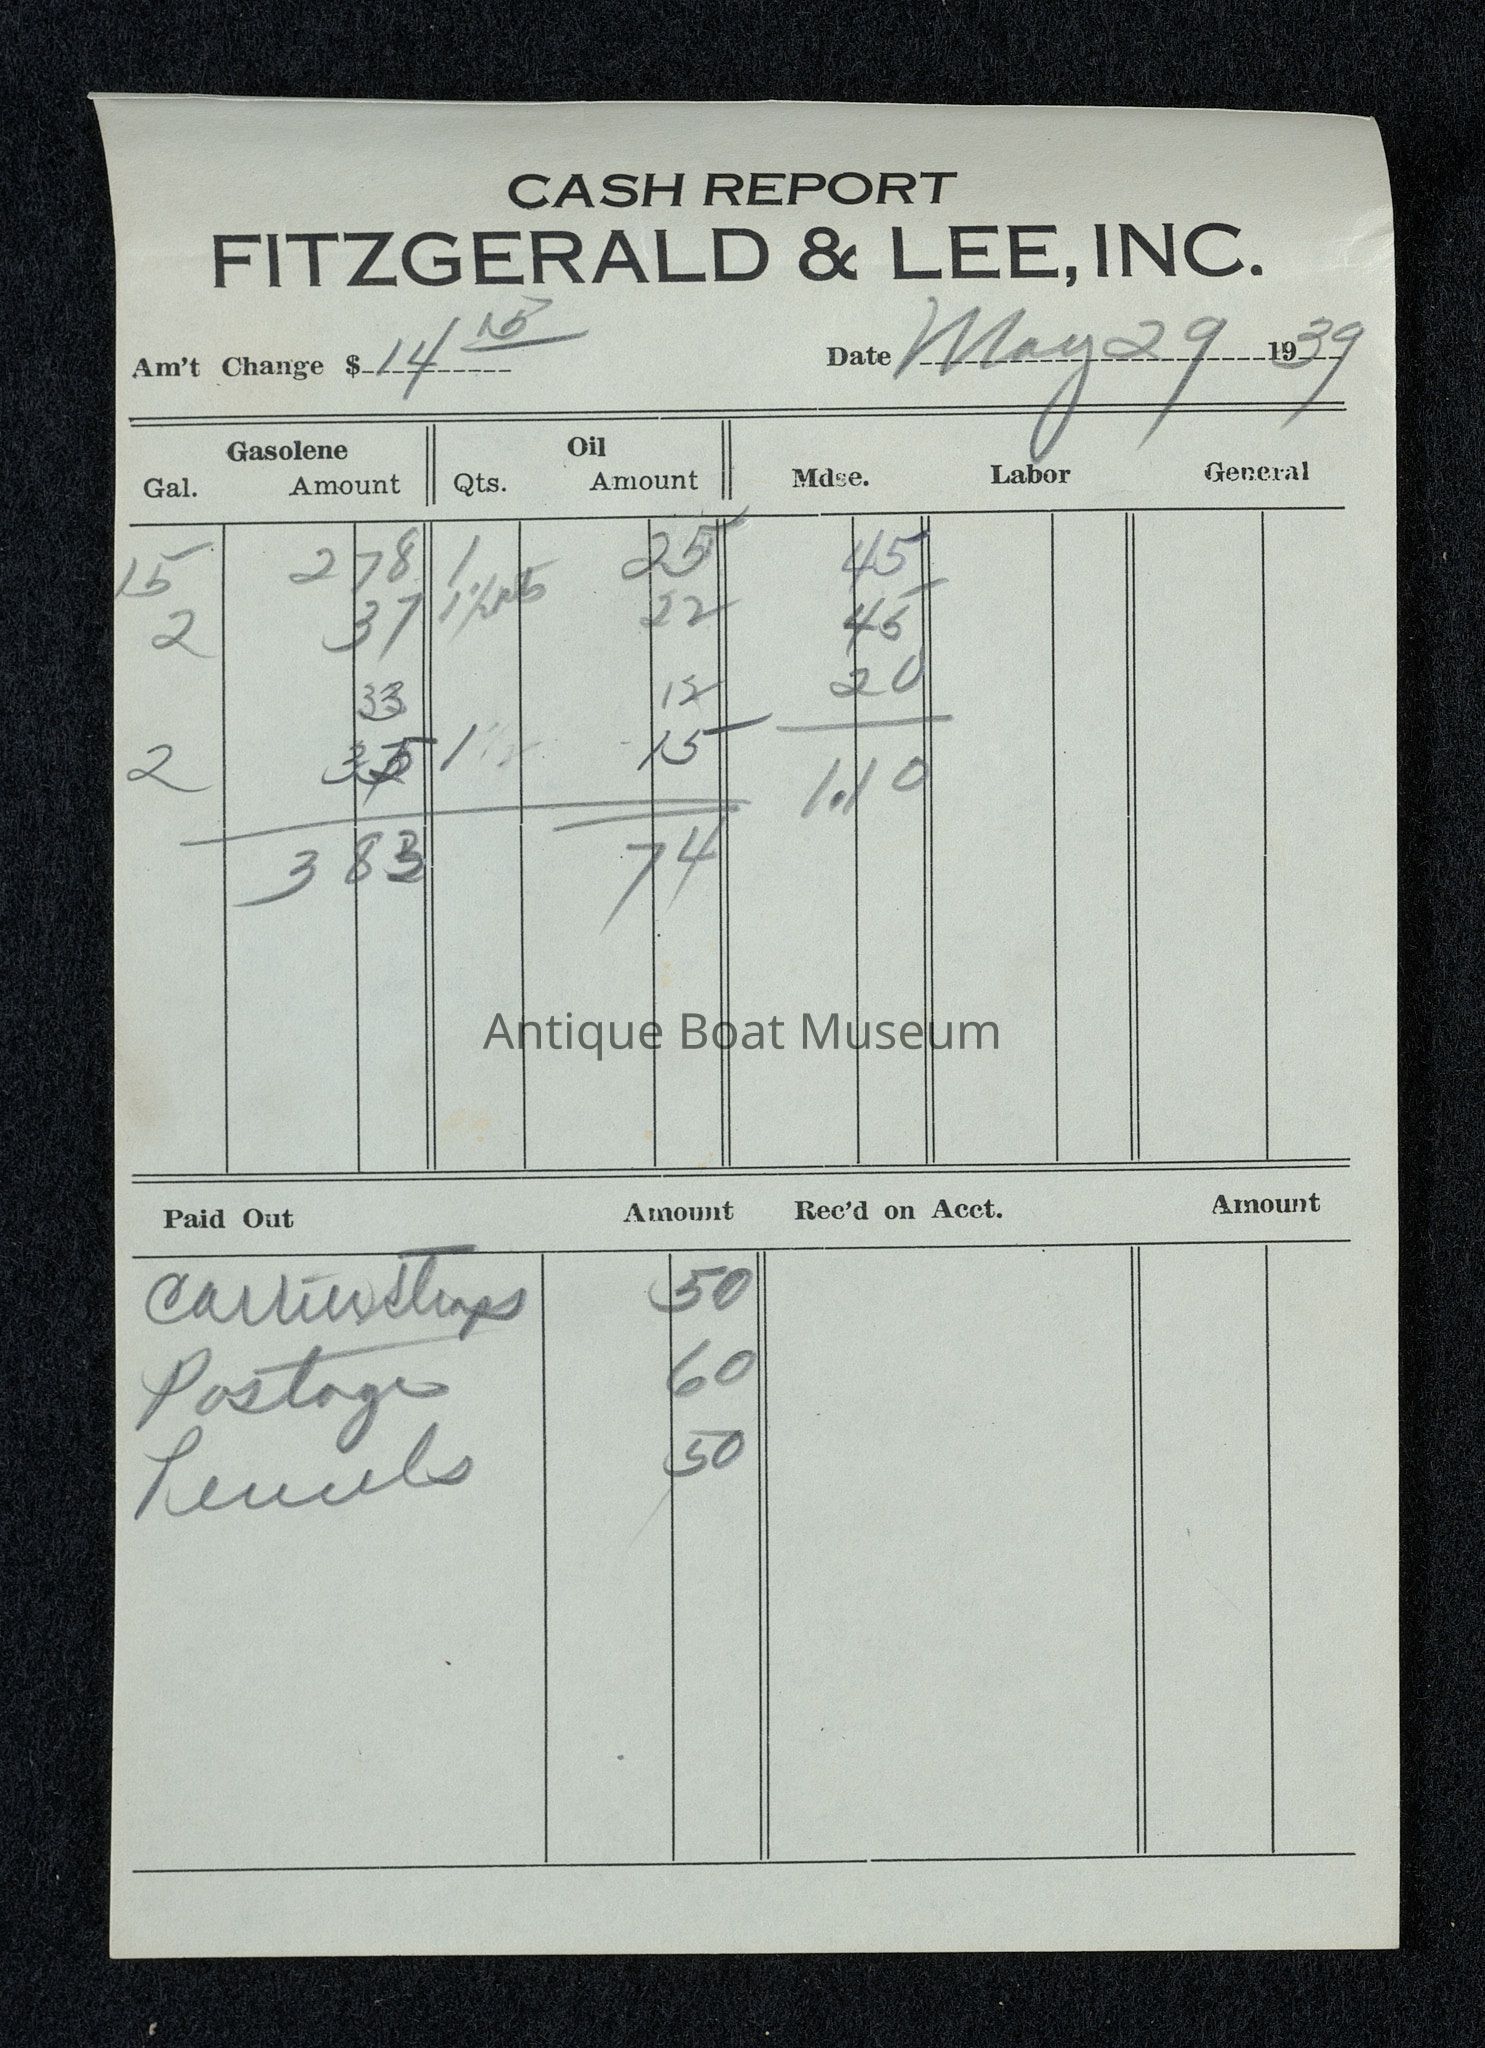 CASH REPORT
FITZGERALD & LEE, INC.
Am't Change $ 14 15 Date May 29 1939
Gasolene Oil
Gal. Amount Qts. Amount Mdse. Labor General
15 2 78 1 25 45
2 37 1 22 45
33 12 20
2 35 1 15
1.10
3 83 74
Antique Boat Museum
Paid Out Amount Rec'd on Acct. Amount
Carriers 50
Postage 60
50